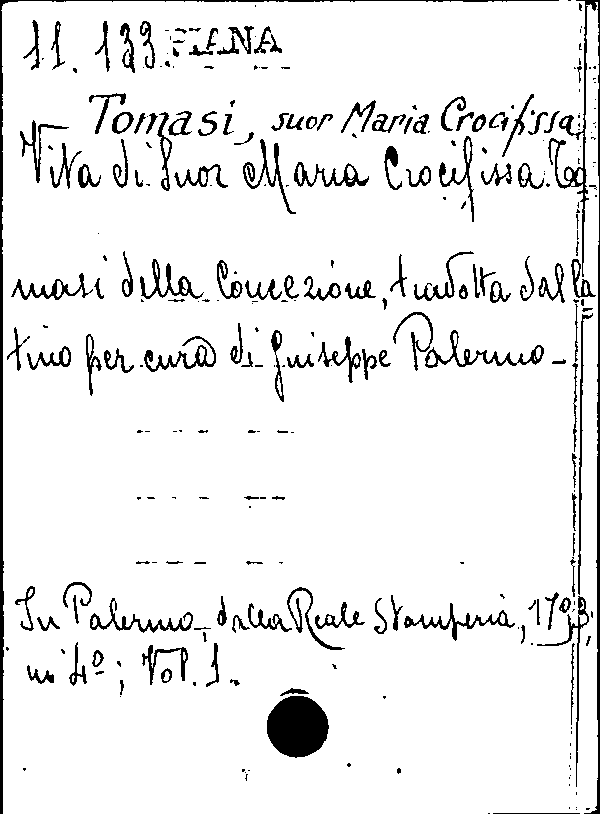 11. 133. FIANA
Tomasi, suor Maria Crocifissa
Vita di Suor Maria Crocifissa To
masi della Concezione, tradotta dal la
tino per cura di Giuseppe Palermo -
In Palermo, dalla Reale Stamperia,
in 4º; Vol. 1.